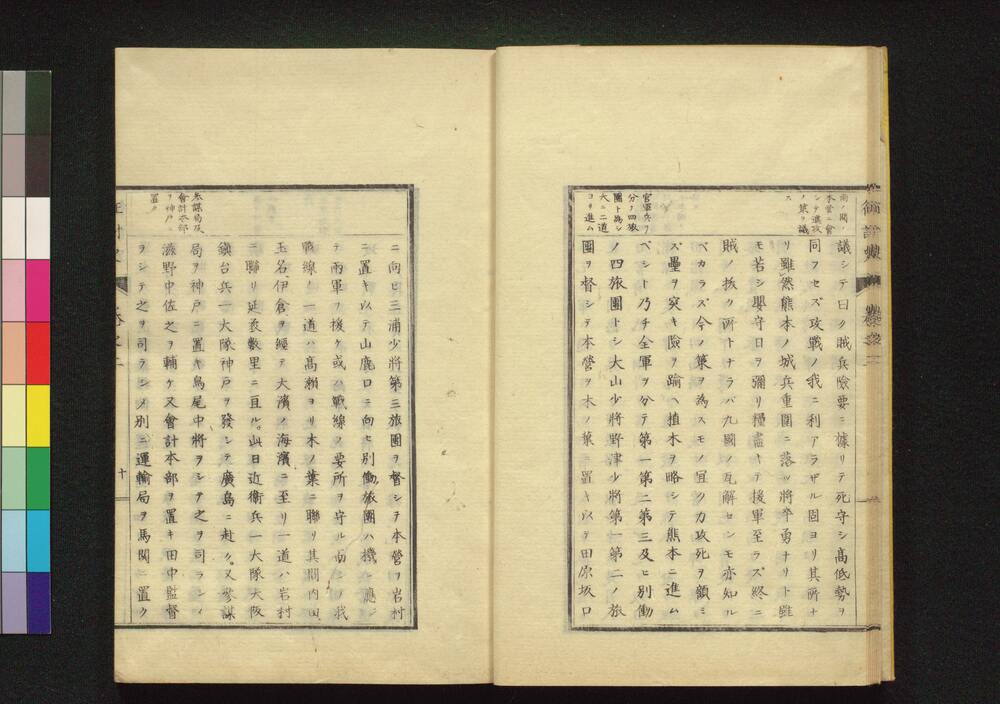 議シテ曰ク賊兵險要ニ據リテ死守シ高低勢ヲ
同フセズ攻戰ノ我ニ利アラザル固ヨリ其所ナ
リ雖然熊本ノ城兵重圍ニ落ツ將卒勇ナリト雖
モ若シ嬰守日ヲ彌リ糧盡キテ援軍至ラズ終ニ
賊ノ拔ク所トナラバ九國ノ瓦解センモ亦知ル
ベカラズ今ノ策ヲ為スモノ宜ク力攻死ヲ顧ミ
ズ壘ヲ突キ險ヲ踰ヘ植木ヲ略シテ熊本ニ進ム
ベシト乃チ全軍ヲ分テ第一第二第三及ヒ別働
ノ四旅團トシ大山少將野津少將第一第二ノ旅
團ヲ督シテ本營ヲ木ノ葉ニ置キ以テ田原坂口
官軍兵ヲ
分チ四旅
團ト為シ
大ニ二道
ヨリ進ム
ニ向ヒ三浦少將第三旅團ヲ督シテ本營ヲ岩村
ニ置キ以テ山鹿口ニ向ヒ別働旅團ハ機ニ應シ
テ兩軍ヲ援ケ或ハ戰線ノ要所ヲ守ル而シテ我
戰線ノ一道ハ高瀬ヨリ木ノ葉ニ聯リ其間内田
玉名伊倉ヲ經テ大濱ノ海濱ニ至リ一道ハ岩村
ニ聯リ延袤數里ニ亘ル。此日近衛兵一大隊大阪
鎭台兵一大隊神戸ヲ發シテ廣島ニ赴ク。又參謀
局ヲ神戸ニ置キ鳥尾中將ヲシテ之ヲ司ラシメ
滋野中佐之ヲ輔ケ又會計本部ヲ置キ田中監督
ヲシテ之ヲ司ラシメ別ニ運輸局ヲ馬關ニ置ク
參謀局及
會計本部
ヲ神戸ニ
置ク
十